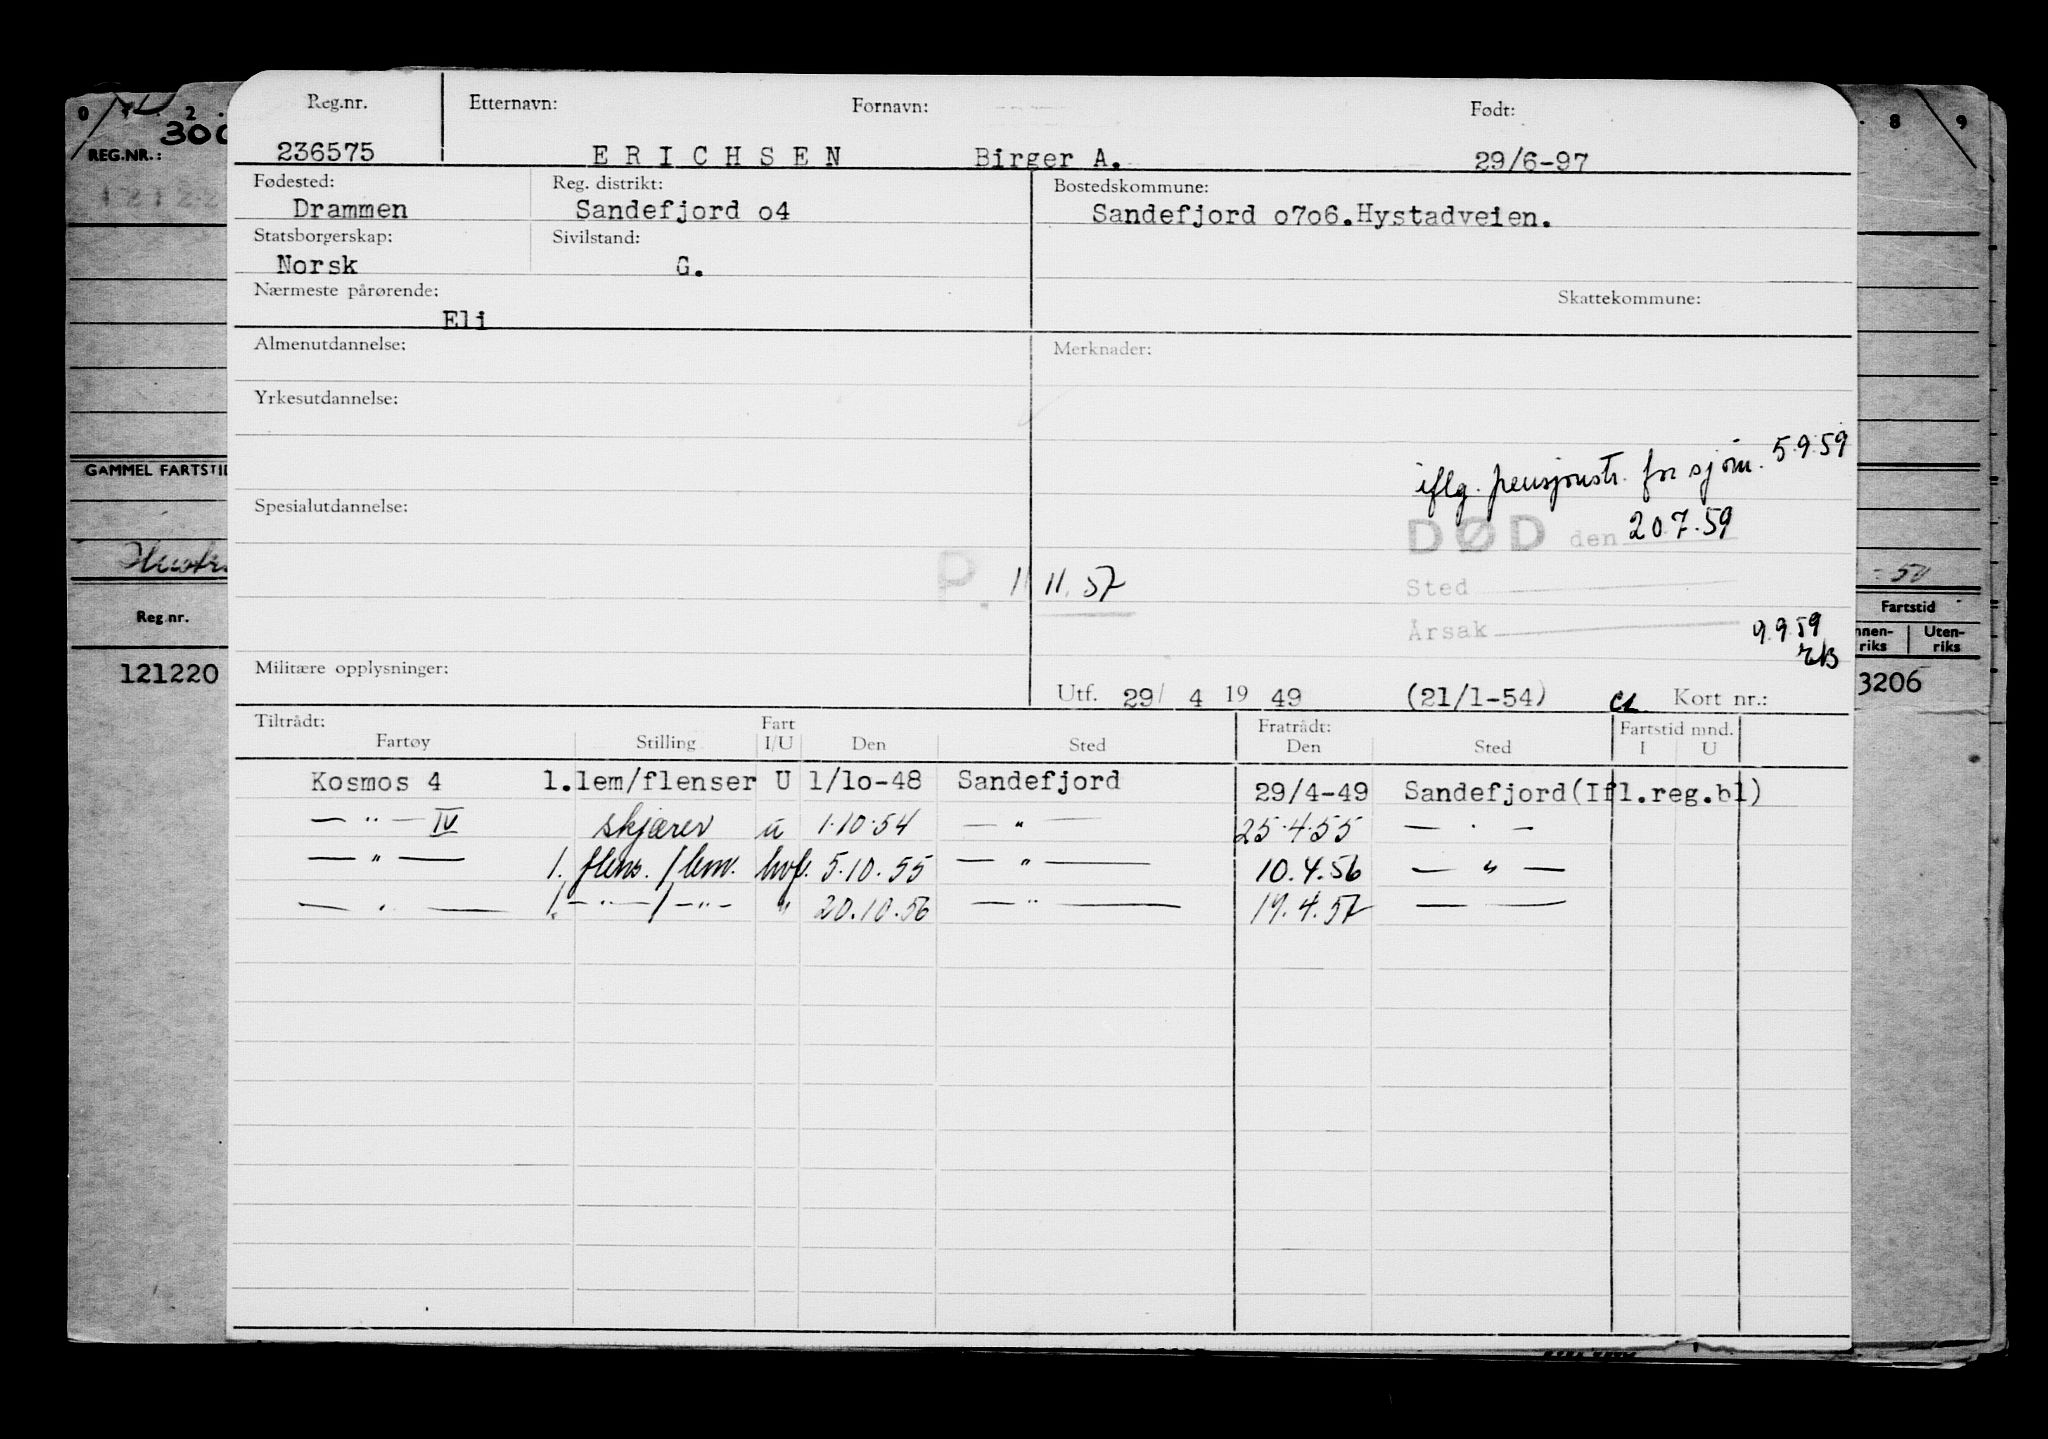 0 2 8 9
300
REG.NR.:
Reg.nr. Etternavn: Fornavn: Født:
236575 ERICHSEN Birger A. 29/6-97
Fødested: Reg. distrikt: Bostedskommune:
Drammen Sandefjord o4 Sandefjord o7o6.Hystadveien.
Statsborgerskap: Sivilstand:
Norsk G.
Nærmeste pårørende: Skattekommune:
Eli
Almenutdannelse: Merknader:
Yrkesutdannelse:
iflg. pensjonstr. for sjøm. 5.9.59
GAMMEL FARTSTI
Spesialutdannelse:
DØD den 20.7.59
P. 1 11.57
Sted
Årsak 9.9.59
Militære opplysninger:
Utf. 29/ 4 19 49 (21/1-54) Kort nr.:
Reg.nr.
121220
- 50
Fartstid
nnen-riks Uten-riks
3206
Tiltrådt: Fart Fratrådt: Fartstid mnd.
Fartøy Stilling I/U Den Sted Den Sted I U
Kosmos 4 1.lem/flenser U 1/1o-48 Sandefjord 29/4-49 Sandefjord(Ifl.reg.bl)
— " — IV skjærer u 1.10.54 — " — 25.4.55 — " —
— " — 1. flens. / lem. hvf. 5.10.55 — " — 10.4.56 — " —
— " — 1. — " — / — " — " 20.10.56 — " — 19.4.57 — —